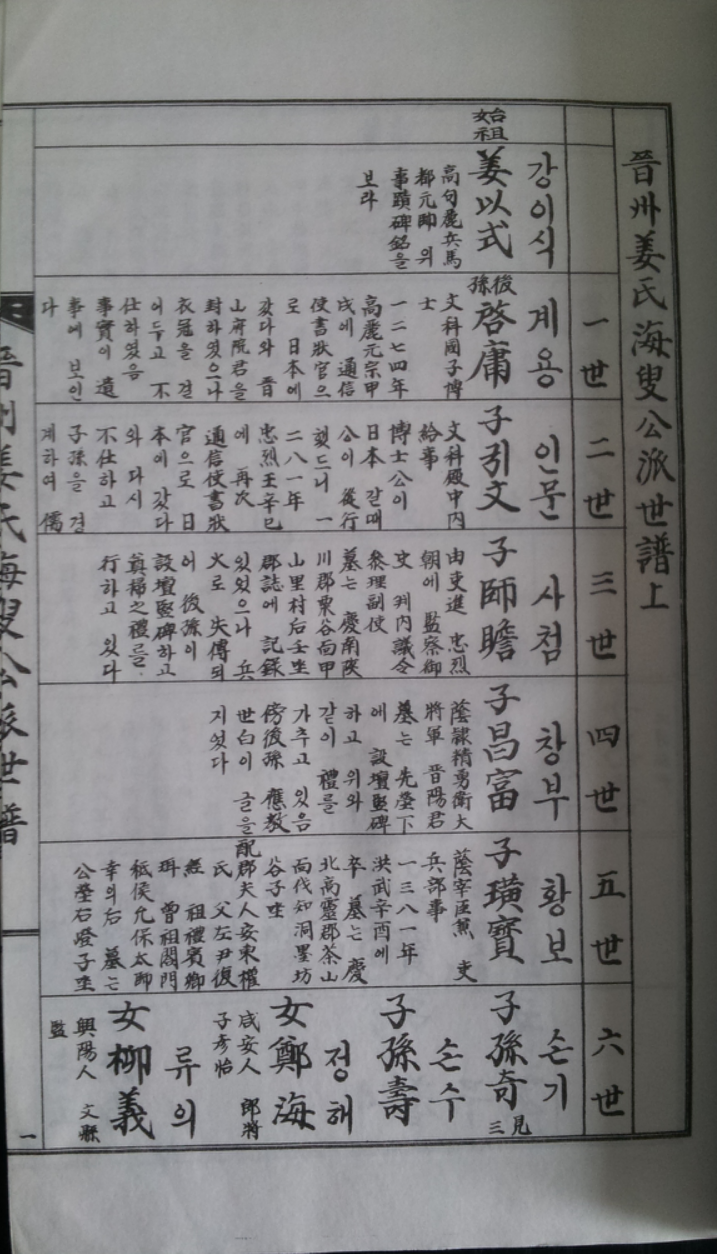 晉州姜氏海叟公派世譜上
始祖
강이식
姜以式
高句麗兵馬
都元帥 위
事蹟碑銘을
보라
一世
계용
後孫
啓庸
文科國子博
士
一二七四年
高麗元宗甲
戌에 通信
使書狀官으
로 日本에
갔다와 晋
山府院君을
封하였으나
衣冠을 걸
어두고 不
仕하였음
事實이 遺
事에 보인
다
二世
인문
子引文
文科殿中內
給事
博士公이
日本 갈때
公이 從行
했드니 一
二八一年
忠烈王辛巳
에 再次
通信使書狀
官으로 日
本에 갔다
와 다시
不仕하고
子孫을 경
계하여 儒
三世
사첨
子師瞻
由吏進 忠烈
朝에 監察御
史 判內議令
參理副使
墓는 慶南陜
川郡栗谷面甲
山里村后壬坐
郡誌에 記錄
있었으나 兵
火로 失傳되
어 後孫이
設壇竪碑하고
奠掃之禮를
行하고 있다
四世
창부
子昌富
蔭隷精勇衛大
將軍 晋陽君
墓는 先塋下
에 設壇竪碑
하고 위와
같이 禮를
가추고 있음
傍後孫 應敎
世白이 글을
지었다
五世
황보
子璜寶
蔭宰臣兼 吏
兵部事
一三八一年
洪武辛酉에
卒 墓는 慶
北高靈郡茶山
面伐知洞墨坊
谷子坐
配郡夫人安東權
氏 父左尹復
經 祖禮賓卿
珥 曾祖閤門
祗侯允保太師
幸의后 墓는
公塋右磴子坐
六世
손기
子孫奇
見三
손수
子孫壽
정해
女鄭海
咸安人 郎將
子彥怡
류의
女柳義
興陽人 文縣
監
一
晉州姜氏海叟公派世譜